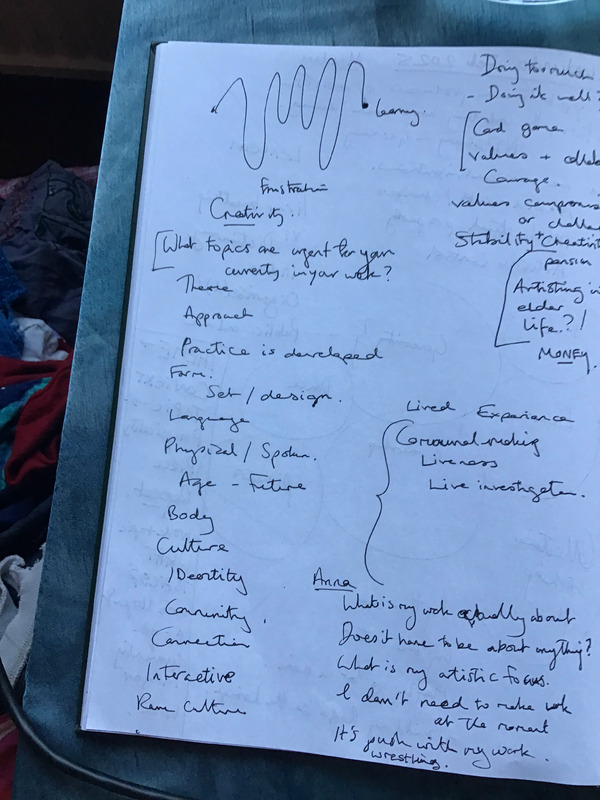 learning.
frustration
Creativity.
What topics are urgent for you
currently in your work?
Theme
Approach
Practice is developed
Form.
Set / design.
Language
Physical / Spoken.
Age - Future
Body
Culture
Identity
Community.
Connection
Interactive
Rave Culture
Doing too much
- Doing it well?
Card game
values +
Courage.
values
or
Stability +
pension
Artisting in
elder
life.?!
MONEY.
Lived Experience
Communal making
Liveness
Live investigation.
Anna
What is my work actually about
Does it have to be about anything?
What is my artistic focus.
I don't need to make work
at the moment
It's push with my work.
wrestling.